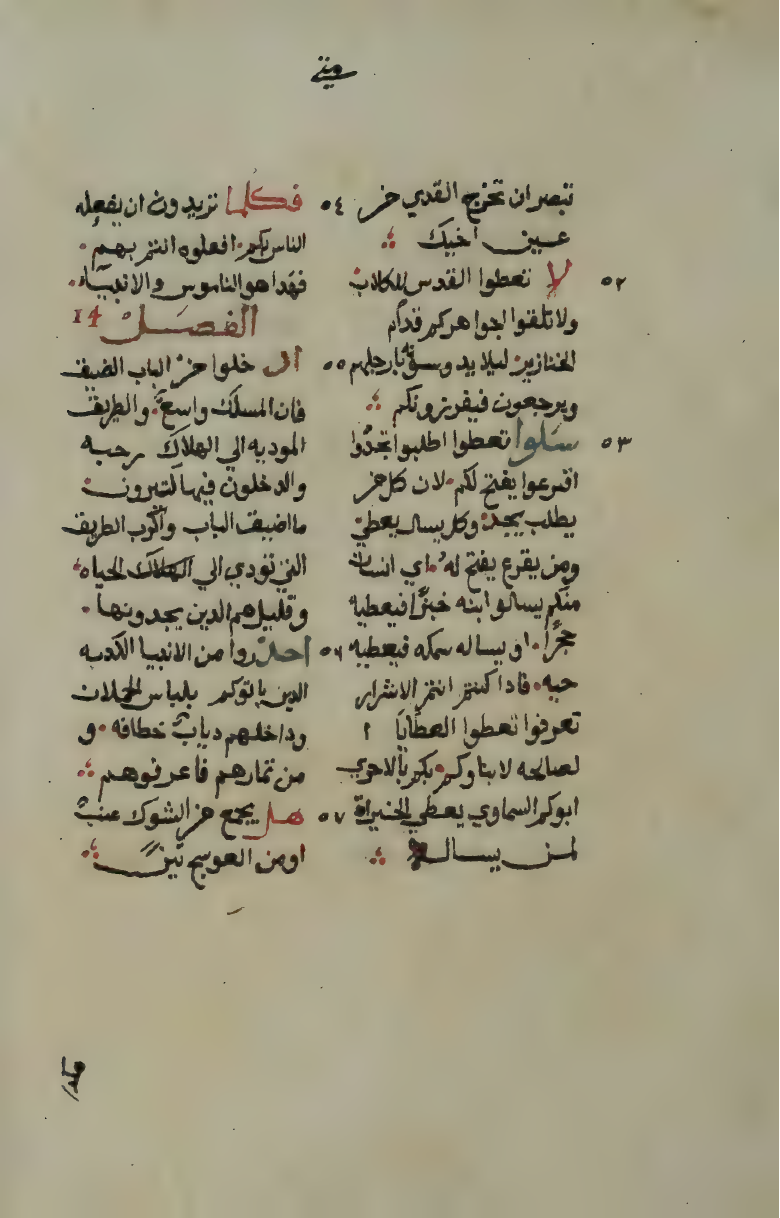 متي
تبصر ان تخرج القدي من
عين اخيك
٥٢ لا تعطوا القدس للكلاب
ولا تلقوا جواهركم قدام
الخنازير ليلا يدوسوه بارجلهم
ويرجعون فيفزرونكم
٥٣ سلوا تعطوا اطلبوا تجدوا
اقرعوا يفتح لكم لان كل من
يطلب يجد وكل يسال يعطي
ومن يقرع يفتح له اي انسان
منكم يسالوا ابنه خبزا فيعطيه
حجرا او يساله سمكه فيعطيه
حيه فادا كنتم انتم الاشرار
تعرفوا تعطوا العطايا ا
لصالحه لابناوكم بكم بالاحري
ابوكم السماوي يعطي الخيراة
لمن يساله
٥٤ فكلما تريدون ان يفعله
الناس بكم افعلوه انتم بهم
فهدا هو الناموس والانبياء
الفصل 14
٥٥ ادخلوا من الباب الضيق
فان المسلك واسع والطريق
الموديه الي الهلاك رحبه
والدخلون فيها كتيرون
ما اضيق الباب واكرب الطريق
التي تودي الي الهلاك الحياه
وقليل هم الدين يجدونها
٥٦ احدروا من الانبيا الكدبه
الدين ياتوكم بلباس الحملان
وداخلهم دياب خطافه و
من تمارهم فاعرفوهم
٥٧ هل يجمع من الشوك عنب
او من العوسج تين